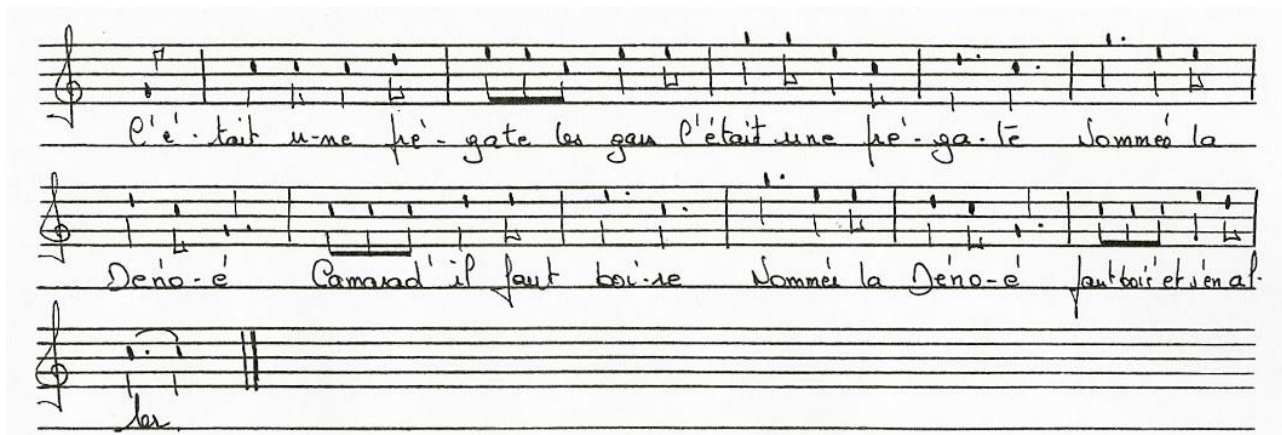 C'é-tait u-ne fré-gate les gars C'était une fré-ga-te Nommée la
Déno-é Camarad' il faut boi-re Nommée la Déno-é faut boir' et s'en al-
ler.